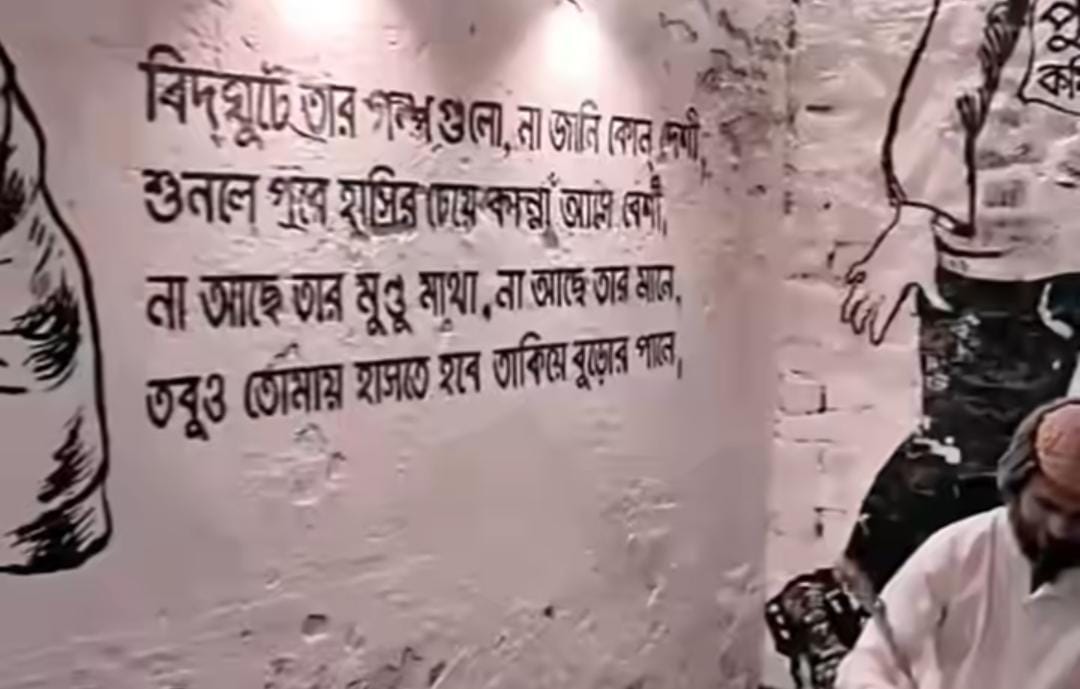 বিদ্‌ঘুটে তার গল্পগুলো, না জানি কোন্ দেশী,
শুনলে পরে হাসির চেয়ে কান্না আসে বেশী,
না আছে তার মুণ্ডু মাথা, না আছে তার মানে,
তবুও তোমায় হাসতে হবে তাকিয়ে বুড়োর পানে,